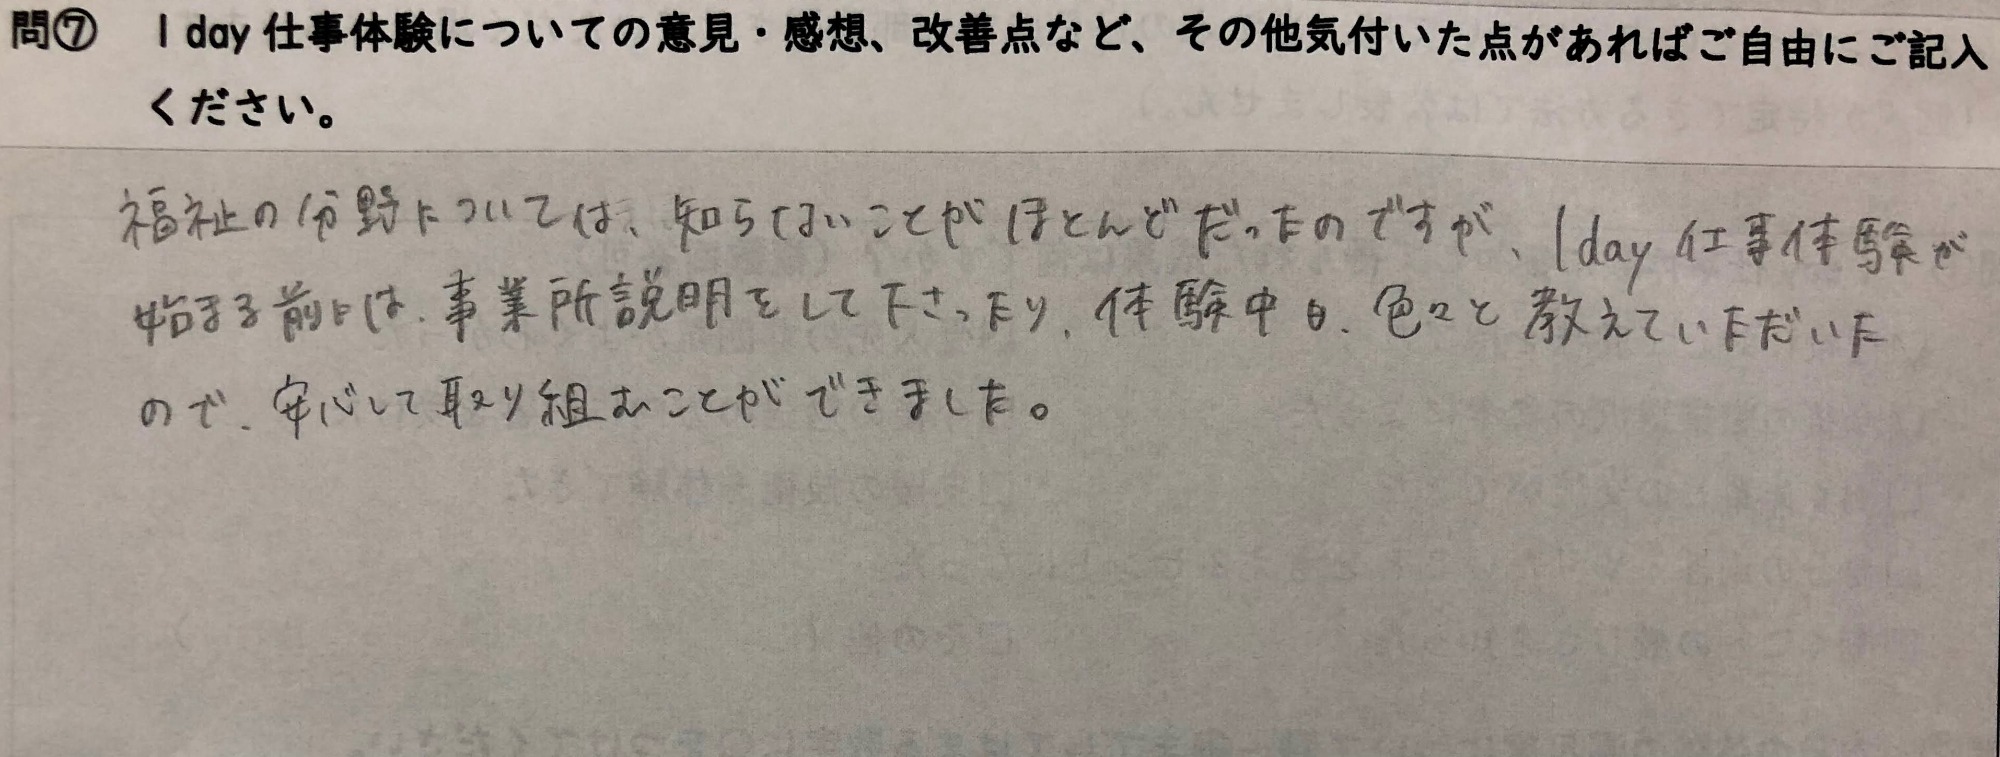 問⑦ 1day仕事体験についての意見・感想、改善点など、その他気付いた点があればご自由にご記入
ください。
福祉の分野については、知らないことがほとんどだったのですが、1day仕事体験が
始まる前には、事業所説明をして下さったり、体験中も、色々と教えていただいた
ので、安心して取り組むことができました。